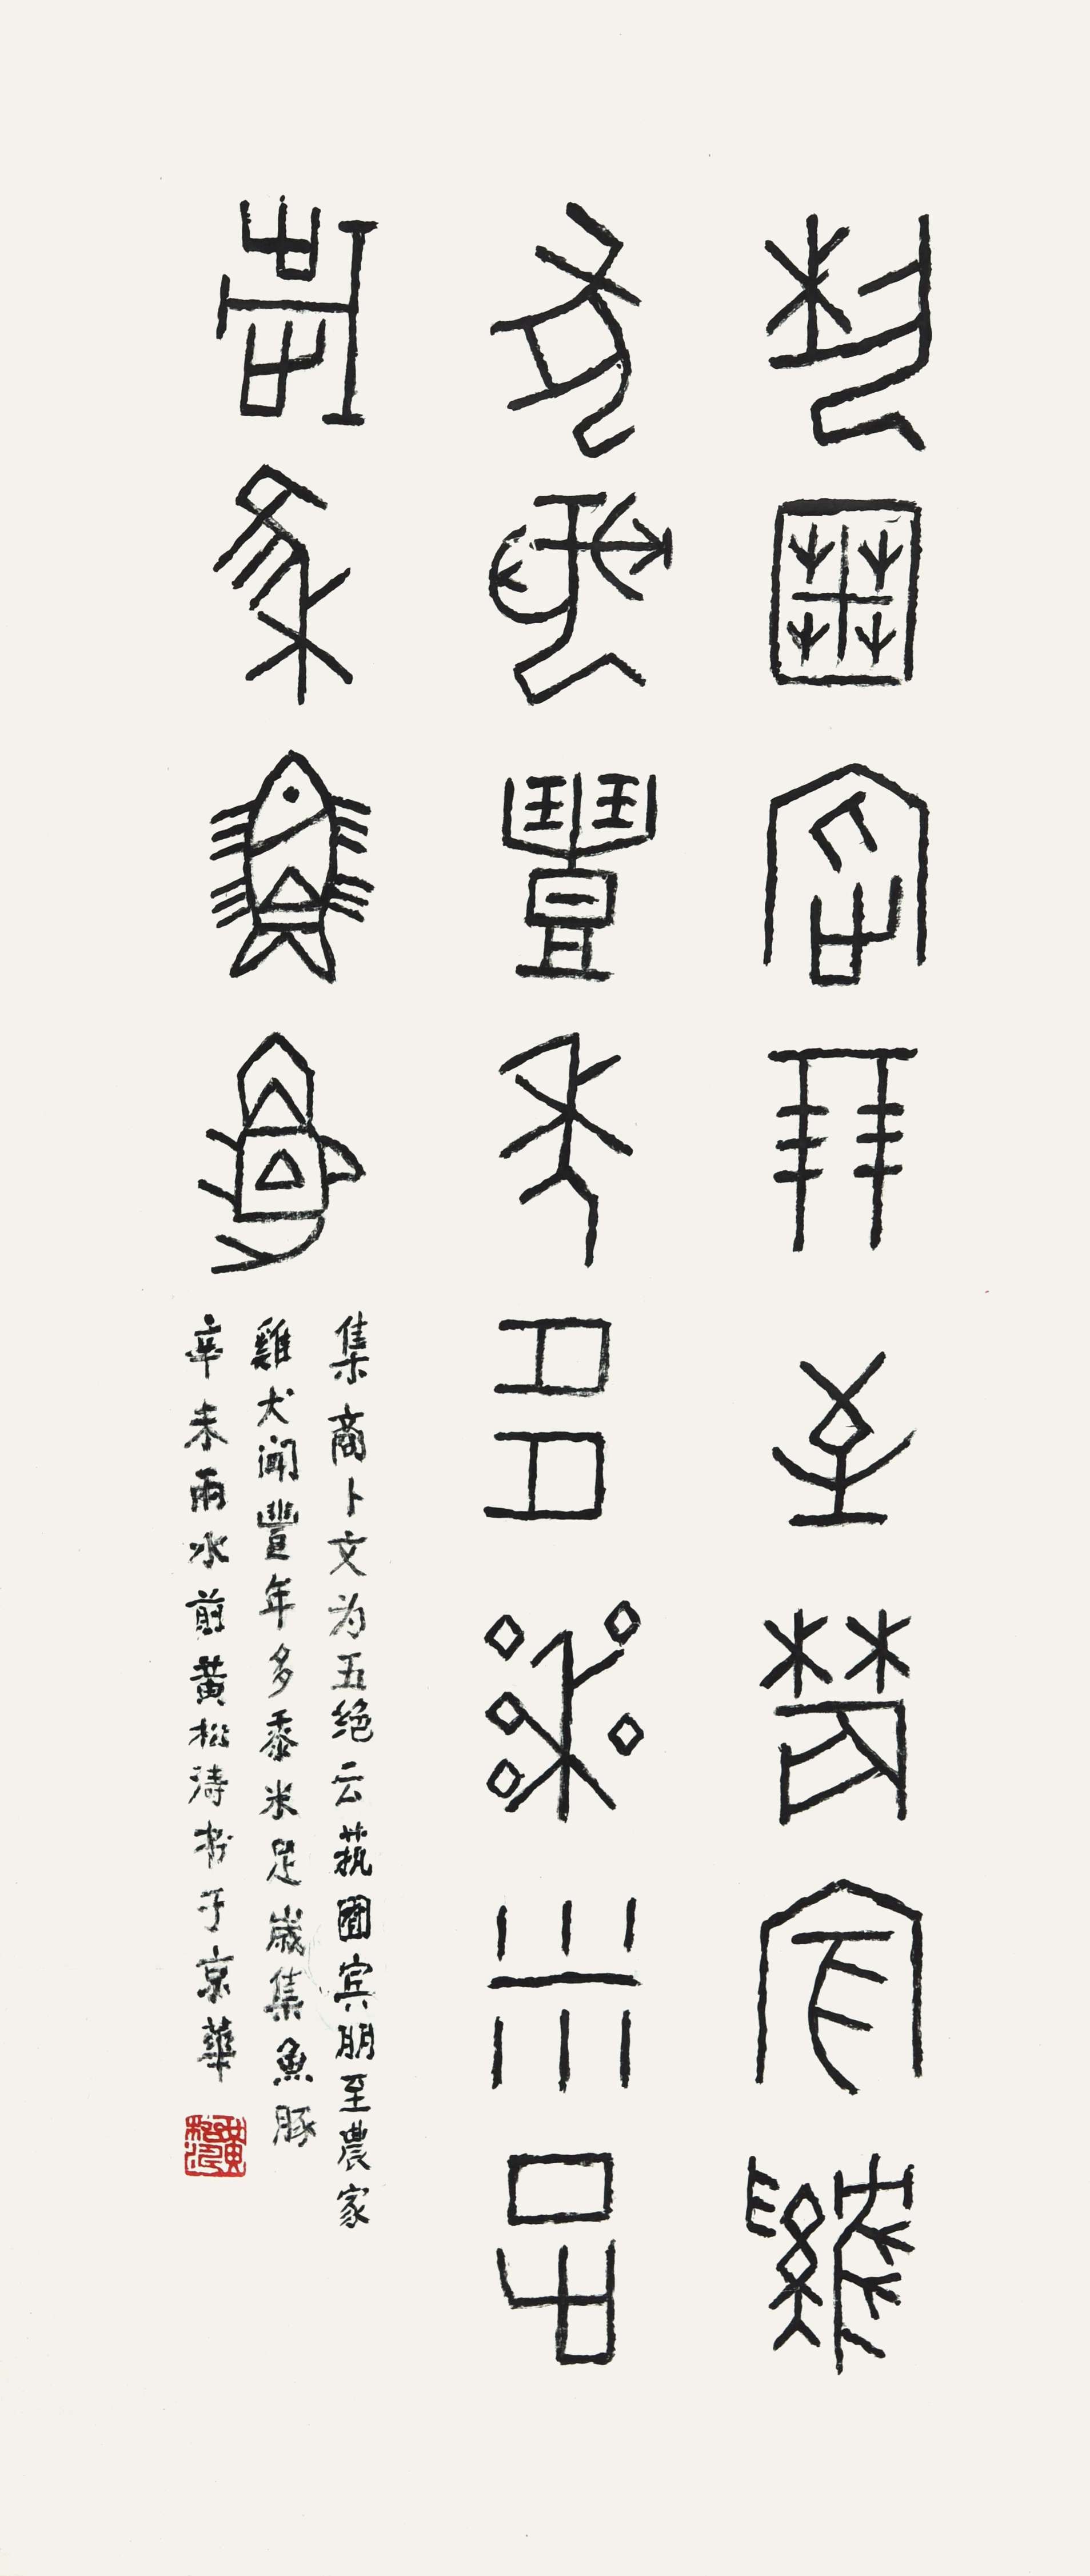 蓺囿宾朋至農家雞
犬聞豐年多黍米足
歲集魚豚
集商卜文为五绝云蓺囿宾朋至農家
雞犬聞豐年多黍米足歲集魚豚
辛未雨水前黄松涛书于京華